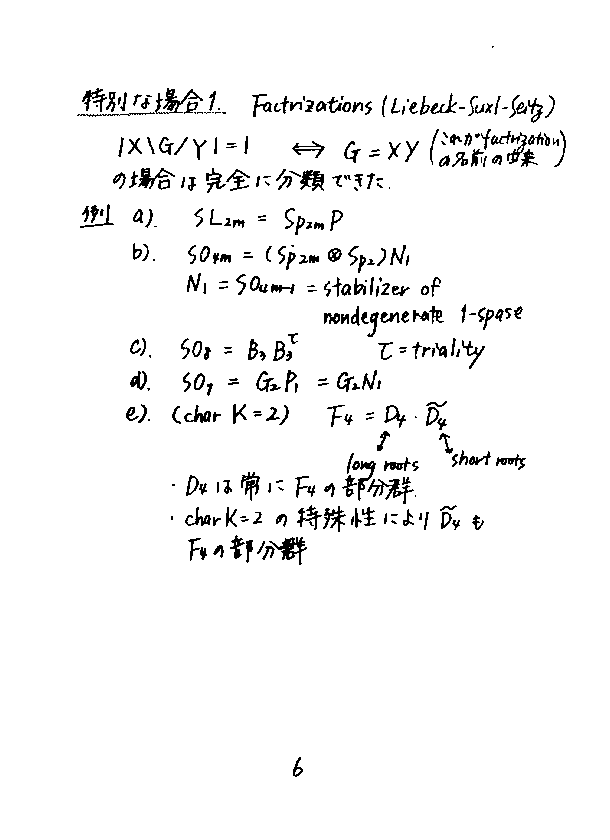 特別な場合1. Factrizations (Liebeck-Saxl-Seitz)
|X\G/Y|=1 ⇔ G=XY (これがfactrizationの名前の由来)
の場合は完全に分類できた.
例1 a). SL₂ₘ = Sp₂ₘ P
b). SO₄ₘ = (Sp₂ₘ ⊗ Sp₂)N₁
N₁ = SO₄ₘ₋₁ = stabilizer of
nondegenerate 1-spase
c). SO₈ = B₃ B₃^τ τ=triality
d). SO₇ = G₂P₁ = G₂N₁
e). (char K=2) F₄ = D₄ · D̃₄
long roots short roots
・D₄は常にF₄の部分群.
・char K=2 の特殊性により D̃₄も
F₄の部分群
6